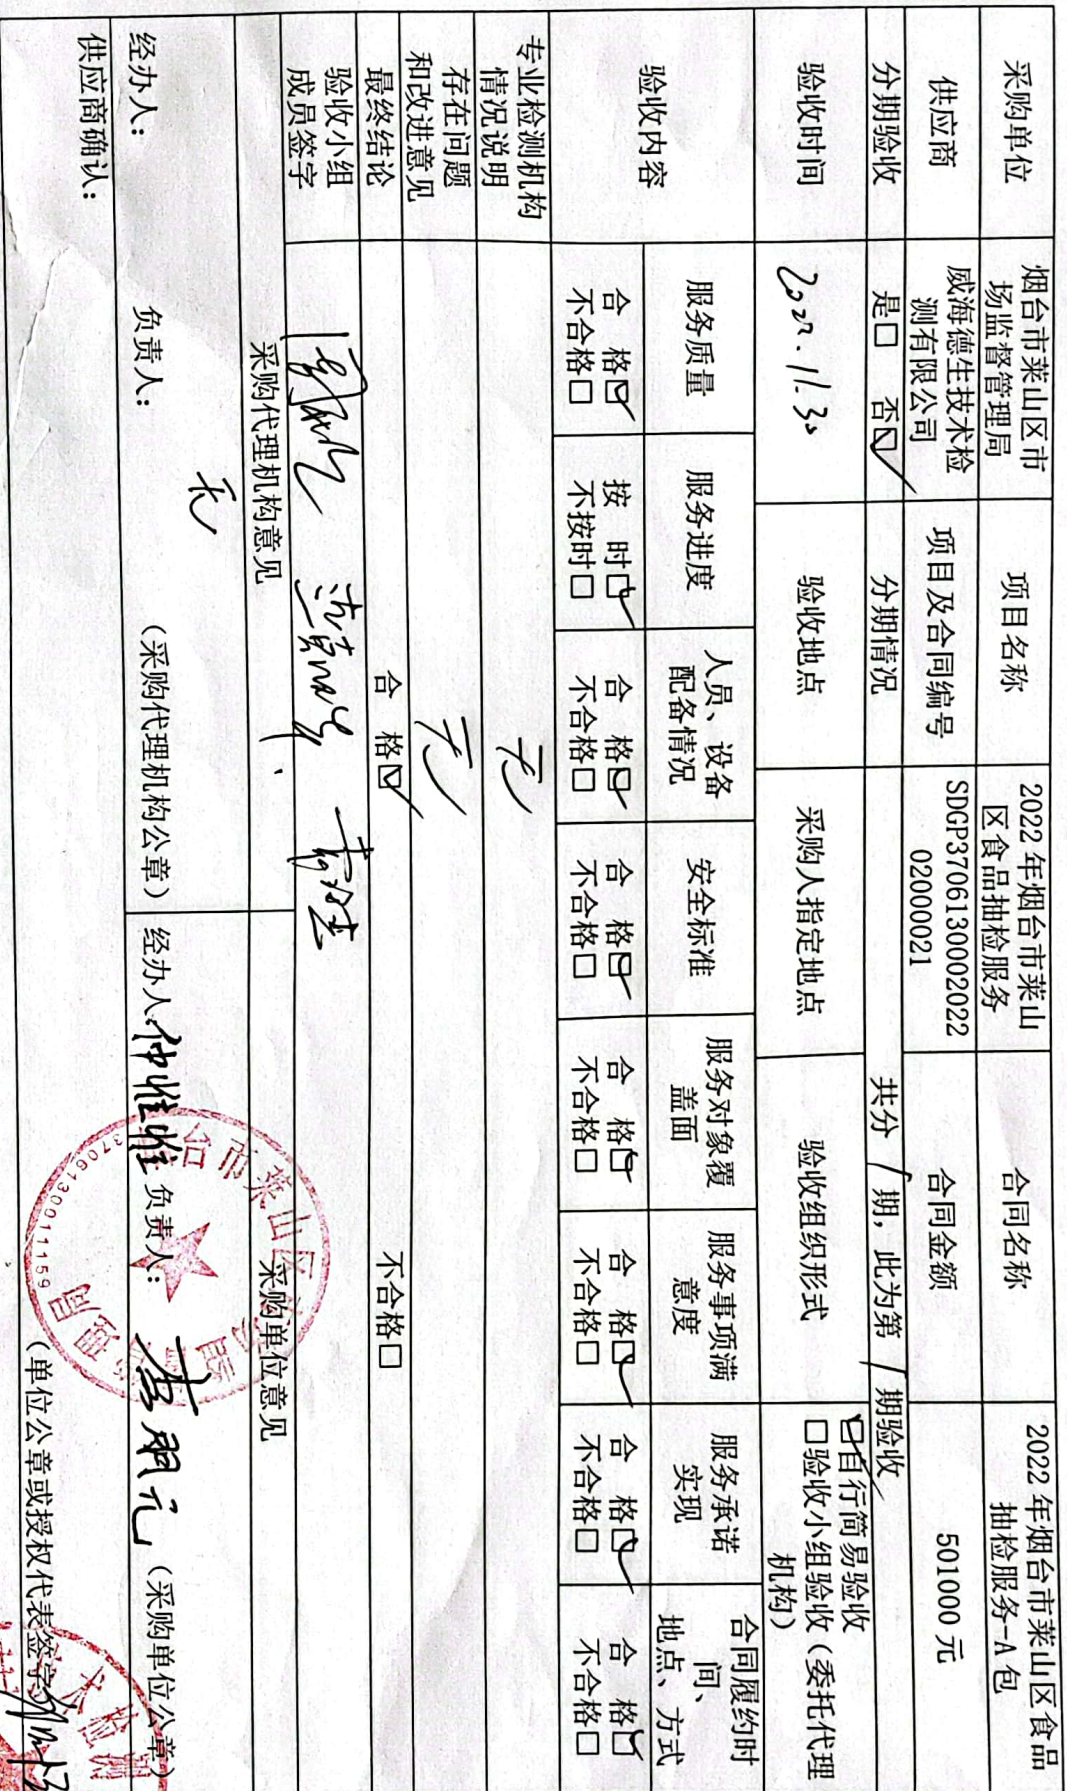 采购单位
烟台市莱山区市
场监督管理局
项目名称
2022 年烟台市莱山
区食品抽检服务
合同名称
2022 年烟台市莱山区食品
抽检服务-A 包
供应商
威海德生技术检
测有限公司
项目及合同编号
SDGP370613000202202
02000021
合同金额
501000 元
分期验收
是□ 否☑
分期情况
共分 / 期，此为第 / 期验收
验收时间
2022.11.30
验收地点
采购人指定地点
验收组织形式
☑自行简易验收
□验收小组验收（委托代理
机构）
验收内容
服务质量
服务进度
人员、设备
配备情况
安全标准
服务对象覆
盖面
服务事项满
意度
服务承诺
实现
合同履约时
间、
地点、方式
合 格☑
不合格□
按 时☑
不按时□
合 格☑
不合格□
合 格☑
不合格□
合 格☑
不合格□
合 格☑
不合格□
合 格☑
不合格□
合 格☑
不合格□
专业检测机构
情况说明
无
存在问题
和改进意见
无
最终结论
合 格☑
不合格□
验收小组
成员签字
采购代理机构意见
采购单位意见
无
经办人：
负责人：
（采购代理机构公章）
经办人：仲惟惟
负责人：
（采购单位公章）
台市莱山区
监督
管理局
3706130011159
供应商确认：
（单位公章或授权代表签字）
术检测